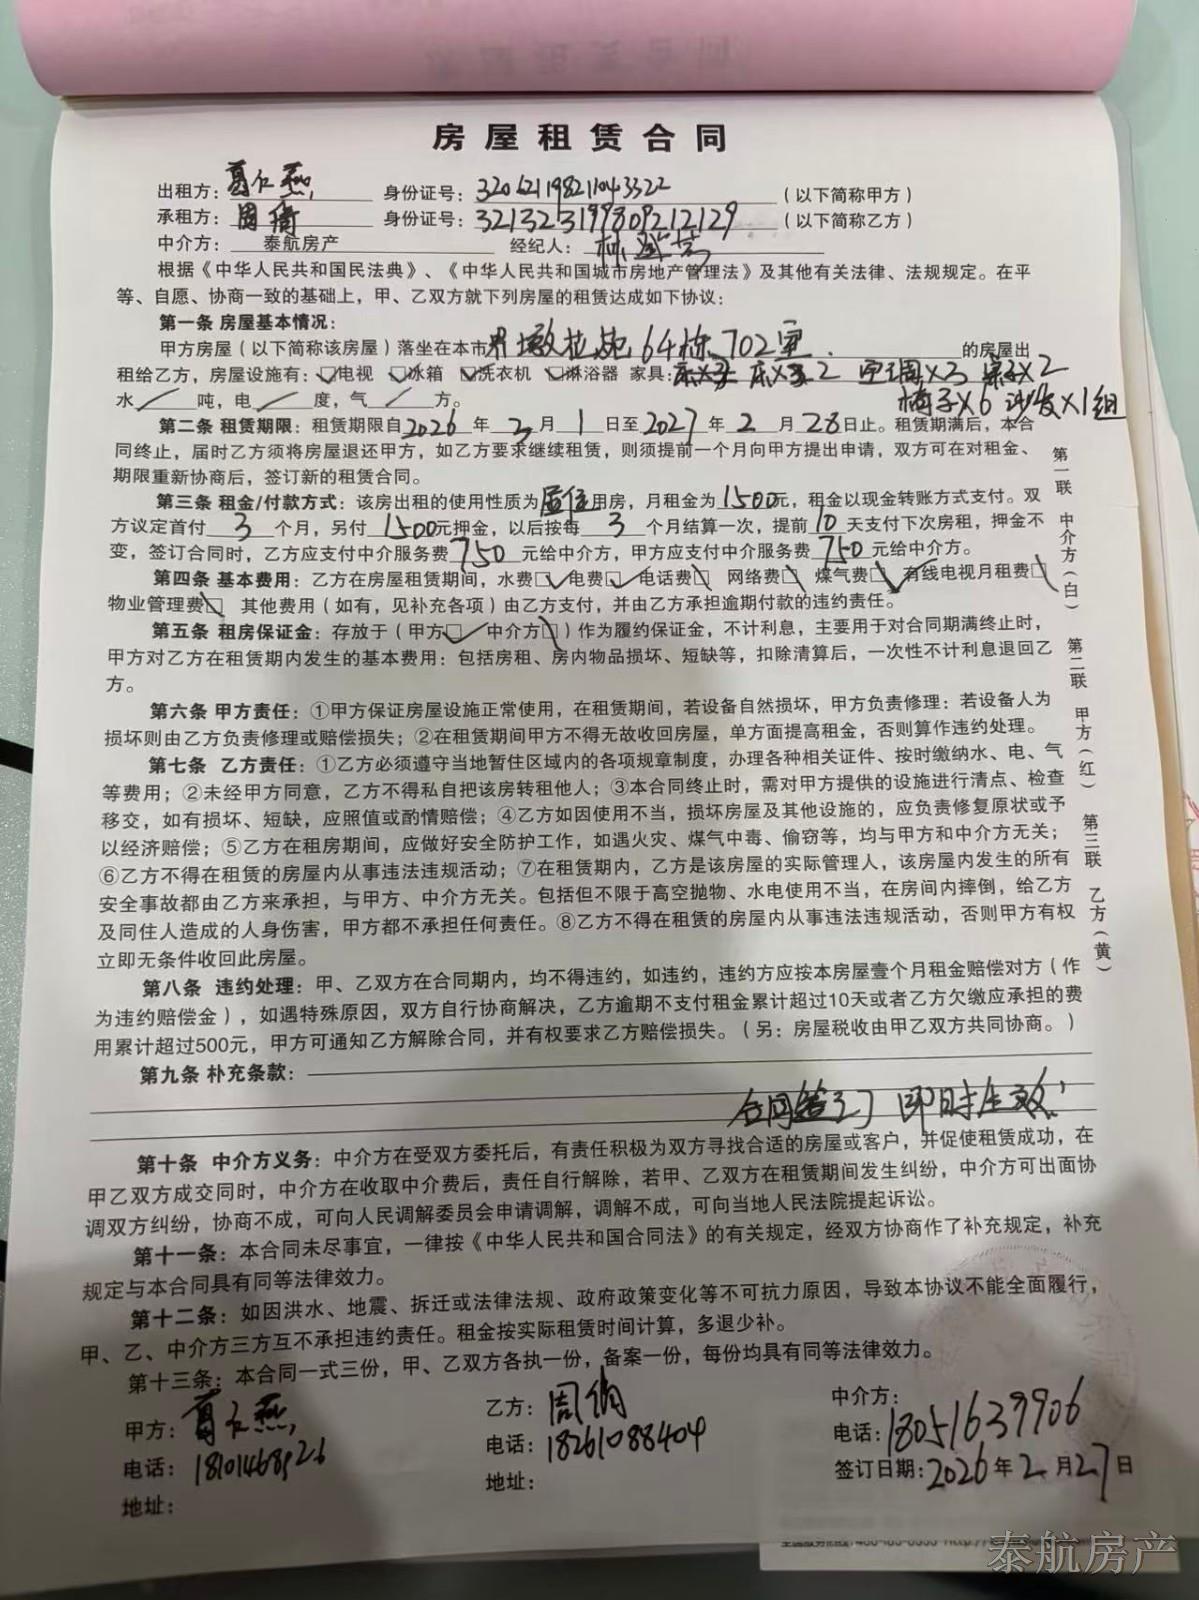 房屋租赁合同
出租方：葛仁燕 身份证号：320621198211043322 （以下简称甲方）
承租方：周俏 身份证号：321323199809212129 （以下简称乙方）
中介方：泰航房产 经纪人：林
根据《中华人民共和国民法典》、《中华人民共和国城市房地产管理法》及其他有关法律、法规规定。在平
等、自愿、协商一致的基础上，甲、乙双方就下列房屋的租赁达成如下协议：
第一条 房屋基本情况：
甲方房屋（以下简称该房屋）落坐在本市 拉苑64栋702室. 的房屋出
租给乙方，房屋设施有：☑电视 ☑冰箱 ☑洗衣机 ☑淋浴器 家具： 床×2 空调×3 桌×2
水／吨，电／度，气／方。 椅子×6 沙发×1组
第二条 租赁期限：租赁期限自2026年3月1日至2027年2月28日止。租赁期满后，本合
同终止，届时乙方须将房屋退还甲方，如乙方要求继续租赁，则须提前一个月向甲方提出申请，双方可在对租金、
期限重新协商后，签订新的租赁合同。
第三条 租金/付款方式：该房出租的使用性质为居住用房，月租金为1500元，租金以现金转账方式支付。双
方议定首付3个月，另付1500元押金，以后按每3个月结算一次，提前10天支付下次房租，押金不
变，签订合同时，乙方应支付中介服务费750元给中介方，甲方应支付中介服务费750元给中介方。
第四条 基本费用：乙方在房屋租赁期间，水费☑ 电费☑ 电话费□\ 网络费□\ 煤气费☑ 有线电视月租费□\
物业管理费□\ 其他费用（如有，见补充各项）由乙方支付，并由乙方承担逾期付款的违约责任。
第五条 租房保证金：存放于（甲方☑ 中介方□\）作为履约保证金，不计利息，主要用于对合同期满终止时，
甲方对乙方在租赁期内发生的基本费用：包括房租、房内物品损坏、短缺等，扣除清算后，一次性不计利息退回乙
方。
第六条 甲方责任：①甲方保证房屋设施正常使用，在租赁期间，若设备自然损坏，甲方负责修理：若设备人为
损坏则由乙方负责修理或赔偿损失；②在租赁期间甲方不得无故收回房屋，单方面提高租金，否则算作违约处理。
第七条 乙方责任：①乙方必须遵守当地暂住区域内的各项规章制度，办理各种相关证件、按时缴纳水、电、气
等费用；②未经甲方同意，乙方不得私自把该房转租他人；③本合同终止时，需对甲方提供的设施进行清点、检查
移交，如有损坏、短缺，应照值或酌情赔偿；④乙方如因使用不当，损坏房屋及其他设施的，应负责修复原状或予
以经济赔偿；⑤乙方在租房期间，应做好安全防护工作，如遇火灾、煤气中毒、偷窃等，均与甲方和中介方无关；
⑥乙方不得在租赁的房屋内从事违法违规活动；⑦在租赁期内，乙方是该房屋的实际管理人，该房屋内发生的所有
安全事故都由乙方来承担，与甲方、中介方无关。包括但不限于高空抛物、水电使用不当，在房间内摔倒，给乙方
及同住人造成的人身伤害，甲方都不承担任何责任。⑧乙方不得在租赁的房屋内从事违法违规活动，否则甲方有权
立即无条件收回此房屋。
第八条 违约处理：甲、乙双方在合同期内，均不得违约，如违约，违约方应按本房屋壹个月租金赔偿对方（作
为违约赔偿金），如遇特殊原因，双方自行协商解决，乙方逾期不支付租金累计超过10天或者乙方欠缴应承担的费
用累计超过500元，甲方可通知乙方解除合同，并有权要求乙方赔偿损失。（另：房屋税收由甲乙双方共同协商。）
第九条 补充条款：
合同签订即时生效
第十条 中介方义务：中介方在受双方委托后，有责任积极为双方寻找合适的房屋或客户，并促使租赁成功，在
甲乙双方成交同时，中介方在收取中介费后，责任自行解除，若甲、乙双方在租赁期间发生纠纷，中介方可出面协
调双方纠纷，协商不成，可向人民调解委员会申请调解，调解不成，可向当地人民法院提起诉讼。
第十一条：本合同未尽事宜，一律按《中华人民共和国合同法》的有关规定，经双方协商作了补充规定，补充
规定与本合同具有同等法律效力。
第十二条：如因洪水、地震、拆迁或法律法规、政府政策变化等不可抗力原因，导致本协议不能全面履行，
甲、乙、中介方三方互不承担违约责任。租金按实际租赁时间计算，多退少补。
第十三条：本合同一式三份，甲、乙双方各执一份，备案一份，每份均具有同等法律效力。
甲方：葛仁燕 乙方：周俏 中介方：
电话：18101468926 电话：18261088404 电话：18051639906
地址： 地址： 签订日期：2026年2月27日
第一联 中介方（白） 第二联 甲方（红） 第三联 乙方（黄）
泰航房产